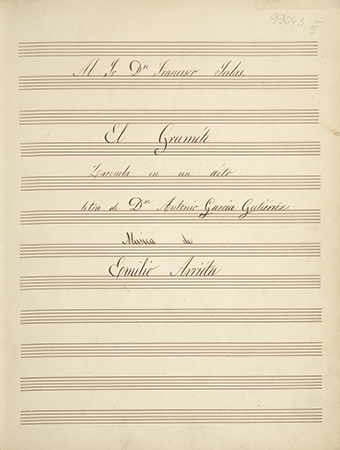 99643 III
Al Sr Dn Francisco Salas
El Grumete
Zarzuela en un acto
letra de Dn Antonio García Gutiérrez
Musica de
Emilio Arrieta